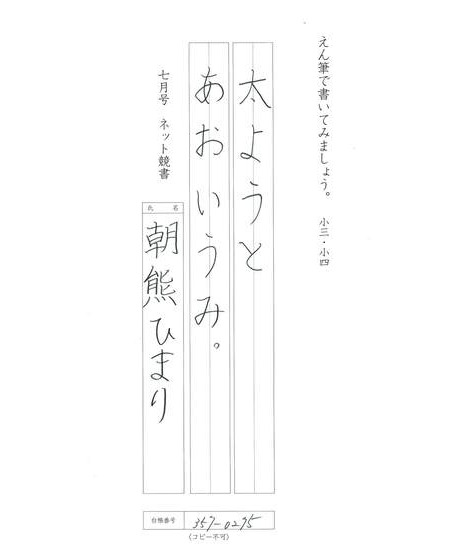 えん筆で書いてみましょう。 小三・小四
太ようと
あおいうみ。
七月号 ネット競書
氏 名
朝熊ひまり
台帳番号 357-0275
(コピー不可)